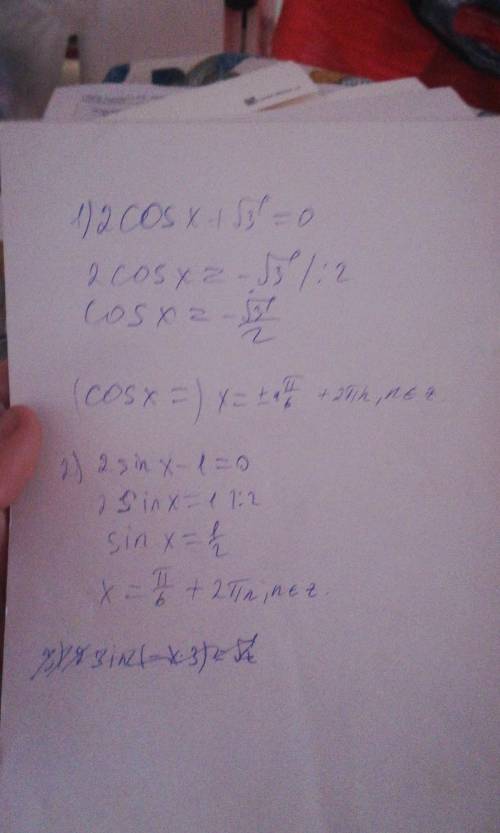 1) 2cos x + √3 = 0
2cos x = -√3 / :2
cos x = -√3/2
(cos x =) x = ± π/6 + 2πn, n ∈ z
2) 2 sin x - 1 = 0
2 sin x = 1 /:2
sin x = 1/2
x = π/6 + 2πn, n ∈ z.